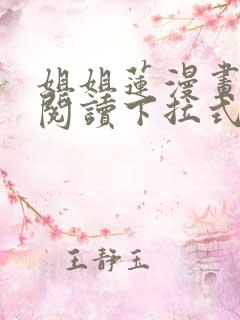 姐姐蓮漫畫
閱讀下拉式
王静玉